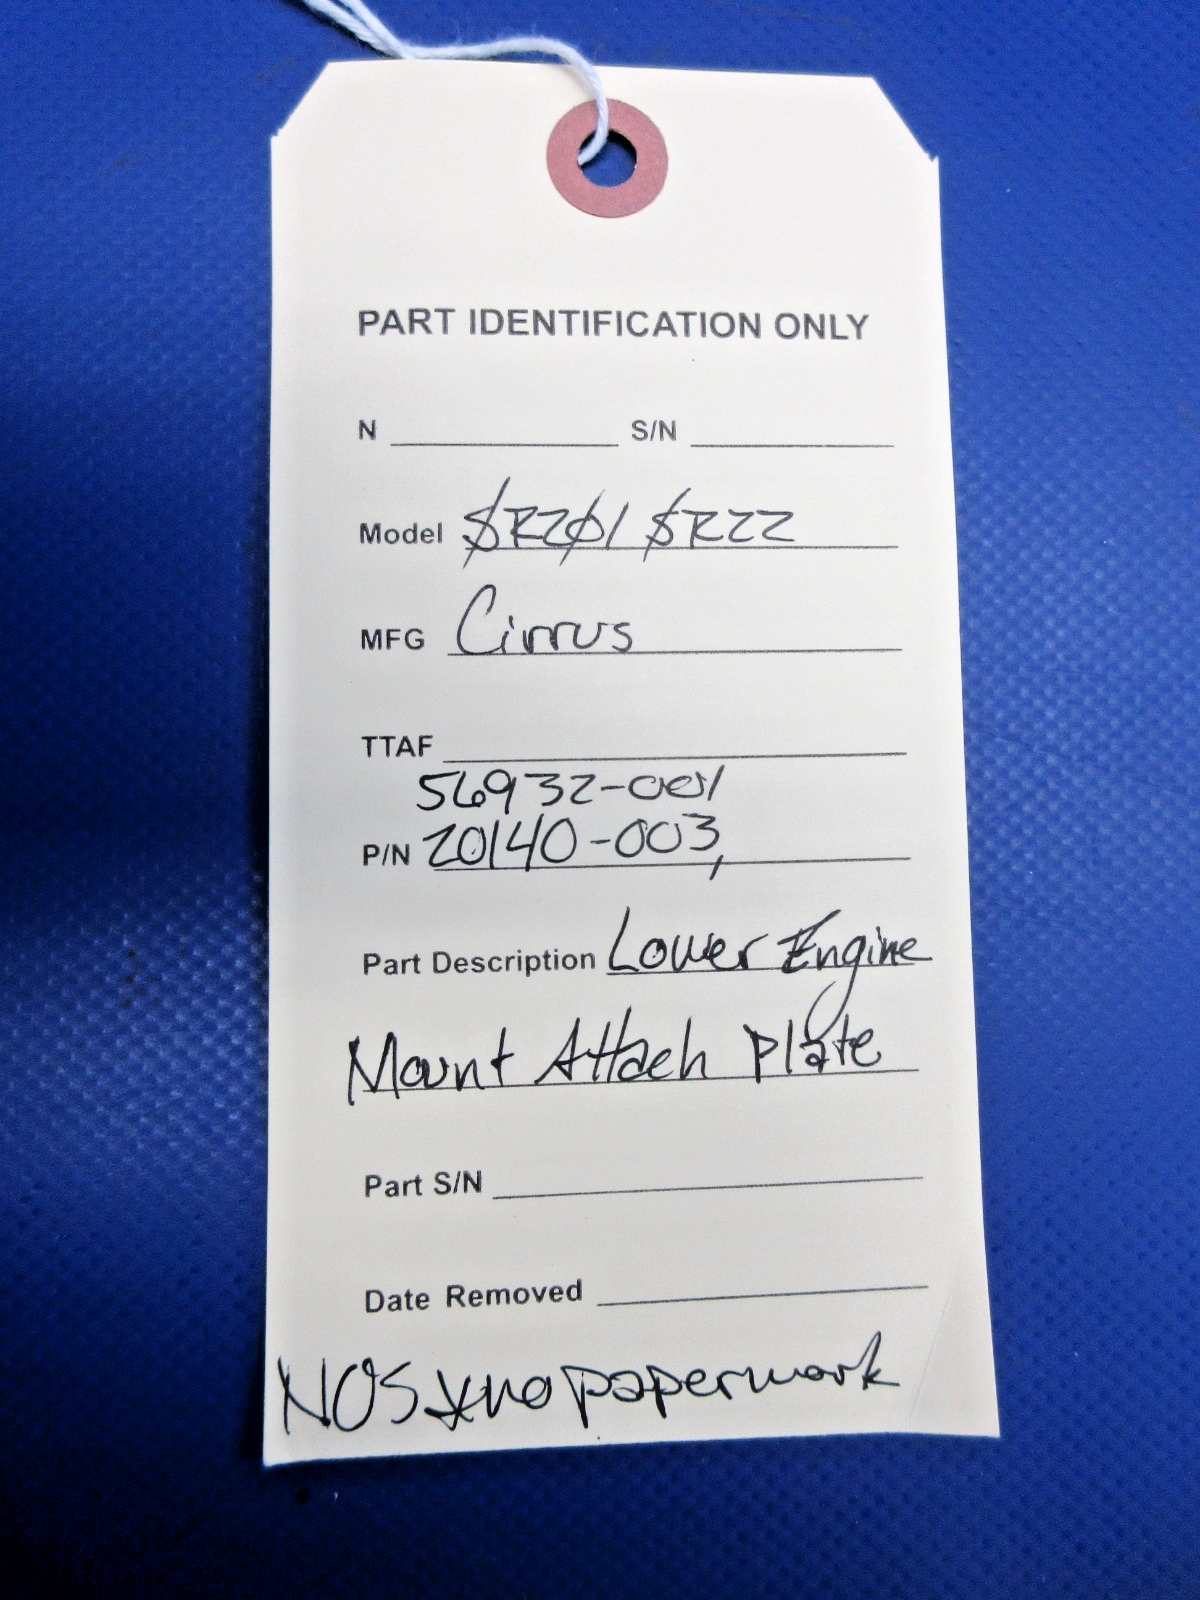 PART IDENTIFICATION ONLY
N S/N
Model SR20/ SR22
MFG Cirrus
TTAF
56932-001
P/N 20140-003,
Part Description Lower Engine
Mount Attach Plate
Part S/N
Date Removed
NOS no paperwork